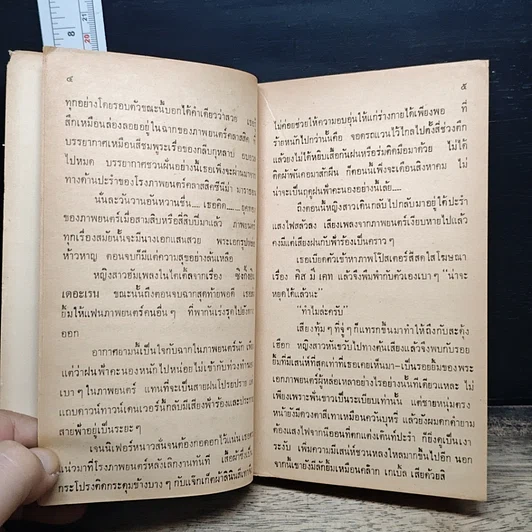 ๔
ทุกอย่างโดยรอบตัวขณะนี้บอกได้คำเดียวว่าสวย เธอรู้
สึกเหมือนล่องลอยอยู่ในฉากของภาพยนตร์คลาสสิค
บรรยากาศเหมือนสีชมพูระเรื่อของกลีบกุหลาบ อบอวล
ไปหมด บรรยากาศชวนฝันอย่างนี้เธอเพิ่งจะผ่านมาจาก
ทางด้านประรำของโรงภาพยนตร์คลาสสิคซีนีม่า มาราธอน
นั่นละวันวานอันหวานชื่น... เธอคิด.....
ของภาพยนตร์เมื่อสามสิบหรือสี่สิบปีมาแล้ว ภาพยนตร์
ทุกเรื่องสมัยนั้นจะมีนางเอกแสนสวย พระเอกรูปหล่อ
ห้าวหาญ ตอนจบก็มีแต่ความสุขอย่างล้นเหลือ
หญิงสาวฮัมเพลงในไตเติ้ลจากเรื่อง ซิงกิ้งอิน
เดอะเรน ขณะนั้นถึงตอนจบฉากสุดท้ายพอดี เธอ
ยิ้มให้แฟนภาพยนตร์คนอื่น ๆ ที่พากันเร่งรุดไปยัง
ออก
อากาศยามนี้เป็นใจกับฉากในภาพยนตร์นัก
แต่ว่าฝนฟ้าคะนองหนักไปหน่อย ไม่เข้ากับท่วงทำนอง
เบา ๆ ในภาพยนตร์ แทนที่จะเป็นสายฝนโปรยปราย
แถบดาวน์ทาวน์เดนเวอร์นั้กลับมีเสียงฟ้าร้องและประกาย
สายฟ้าอยู่เป็นระยะ ๆ
เจนนิเฟอร์หนาวสั่นจนต้องกอดอกไว้แน่น
แน่วมาที่โรงภาพยนตร์หลังเลิกงานทันที เสื้อผ้าซึ่งเป็น
กระโปรงติดกระดุมข้างบาง ๆ กับแจ๊กเก็ตผ้าลินินสี
๕
ไม่ค่อยช่วยให้ความอบอุ่นให้แก่ร่างกายได้เพียงพอ ที่
ร้ายหนักไปกว่านั้นคือ จอดรถแวนไว้ไกลไปตั้งสี่ช่วงตึก
แล้วยังไม่ได้หยิบเสื้อกันฝนหรือร่มติดมือมาด้วย ไม่ได้
ติดผ้าพันคอมาสักผืน ก็ตอนนี้เพิ่งจะเดือนสิงหาคม ไม่
น่าจะเป็นฤดูฝนฟ้าคะนองอย่างนี้เลย.....
ถึงตอนนี้หญิงสาวเดินกลับไปกลับมาอยู่ใต้ประรำ
แสงไฟสลัวลง เสียงเพลงจากภาพยนตร์เงียบหายไปแล้ว
คงมีแต่เสียงฝนกับฟ้าร้องเป็นคราว ๆ
เธอเบียดตัวเข้าหาภาพโปสเตอร์สีสดใสโฆษณา
เรื่อง คิส มี เคท แล้วจึงพึมพำกับตัวเองเบา ๆ "น่าจะ
หยุดได้แล้วนะ"
"ทำไมล่ะครับ"
เสียงทุ้ม ๆ ที่จู่ ๆ ก็แทรกขึ้นมาทำให้ถึงกับสะดุ้ง
เฮือก หญิงสาวหันขวับไปทางต้นเสียงแล้วจึงพบกับรอย
ยิ้มที่มีเสน่ห์ที่สุดเท่าที่เธอเคยเห็นมา-เป็นรอยยิ้มของพระ
เอกภาพยนตร์ผู้หล่อเหลาอย่างไรอย่างนั้นทีเดียวแหละ ไม่
เพียงเพราะฟันขาวเป็นระเบียบเท่านั้น แต่ชายหนุ่มตรง
หน้ายังมีดวงตาสีเทาเหมือนควันบุหรี่ แล้วยังผมดกดำยาม
ต้องแสงไฟจากนีออนที่ตกแต่งเต็นท์ประรำ ก็ยิ่งดูเป็นเงา
ระงับ เพิ่มความมีเสน่ห์ชวนหลงใหลมากขึ้นไปอีก นอก
จากนี้เขายังมีลักยิ้มเหมือนคล๊าก เกเบิ้ล เสียด้วยสิ